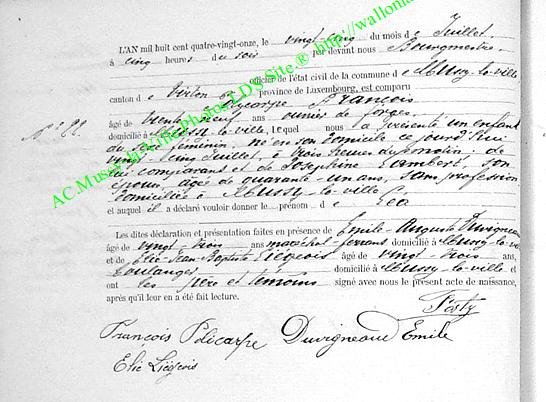 L'AN mil huit cent quatre-vingt-onze, le vingt-cinq du mois de Juillet
à cinq heures du soir par devant nous Bourgmestre
officier de l'état civil de la commune de Mussy-la-ville
canton de Virton province de Luxembourg, est comparu
Policarpe François
âgé de trente neuf ans ouvrier de forges
domicilié à Mussy-la-ville, lequel nous a présenté un enfant
du sexe féminin, né en son domicile ce jourd'hui
vingt-cinq Juillet, à trois heures du matin: de
lui comparant et de Joséphine Lambert, son
épouse, âgée de quarante-un ans, sans profession
domiciliée à Mussy-la-ville
et auquel il a déclaré vouloir donner le prénom de Léa
Les dites déclaration et présentation faites en présence de Emile-Auguste Duvigneaud
âgé de vingt-trois ans maréchal-ferrant domicilié à Mussy-la-v
et de Elie-Jean-Baptiste Liégeois âgé de vingt-trois ans,
boulanger domicilié à Mussy-la-ville et
ont les père et témoins signé avec nous le présent acte de naissance,
après qu'il leur en a été fait lecture.
François Policarpe Duvigneaud Emile
Elie Liégeois